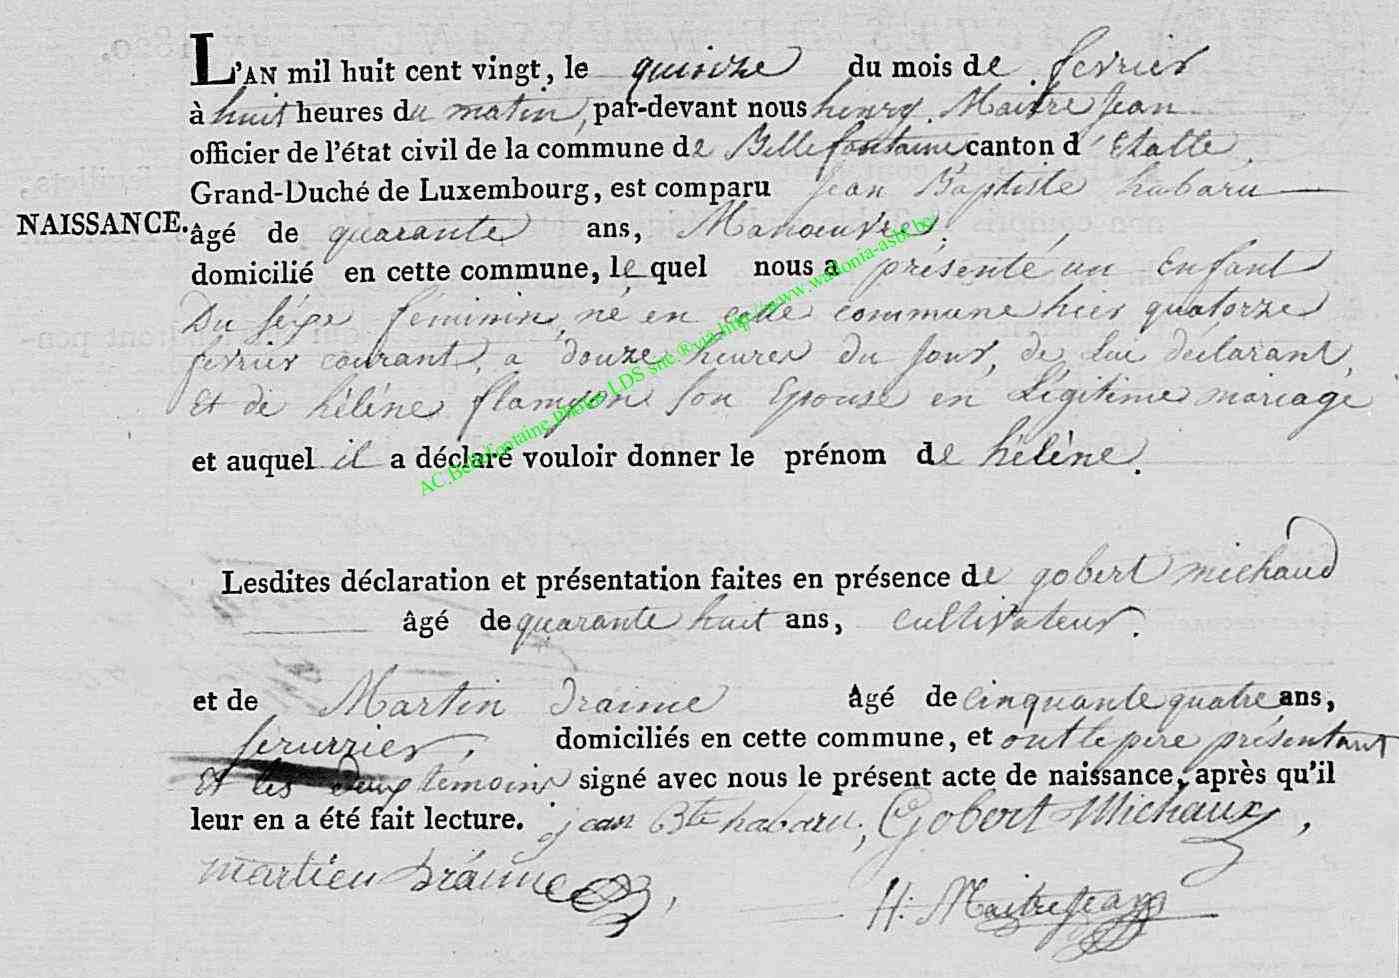 L'AN mil huit cent vingt, le quinze du mois de fevrier
à huit heures du matin, par-devant nous henry Maitre Jean
officier de l'état civil de la commune de Bellefontaine canton d'Etalle
Grand-Duché de Luxembourg, est comparu Jean Baptiste habaru
NAISSANCE. âgé de quarante ans, Manoeuvre,
domicilié en cette commune, lequel nous a présenté un Enfant
Du séxe féminin, né en cette commune hier quatorze
fevrier courant, a douze heures du jour, de lui déclarant,
Et de héléne flamyon son Epouse en Légitime mariage
et auquel il a déclaré vouloir donner le prénom de hélène.
Lesdites déclaration et présentation faites en présence de gobert michaud
âgé de quarante huit ans, cultivateur.
et de Martin draime âgé de cinquante quatre ans,
serurrier, domiciliés en cette commune, et ont le pere présentant
Et les deux témoins signé avec nous le présent acte de naissance, après qu'il
leur en a été fait lecture. jean Bte habaru, Gobert Michaux,
martien Draime,
H: MaitreJean
AC.Bellefontaine Photos LDS snc.® via http://www.wallonia-asbl.be/